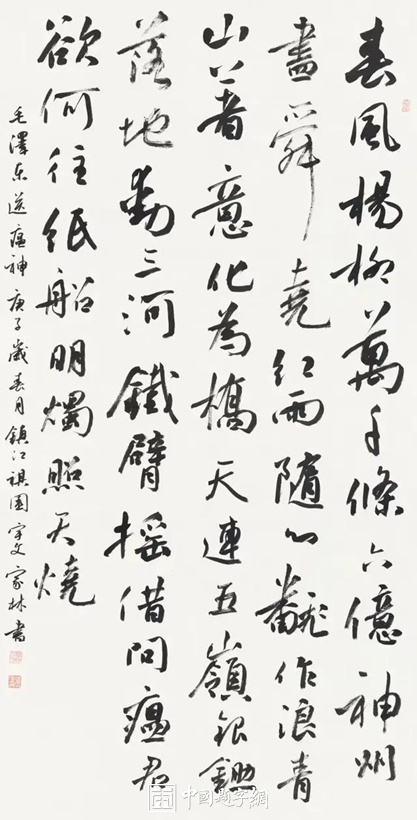 春風楊柳萬千條六億神州
盡舜堯紅雨隨心飜作浪青
山著意化為橋天連五嶺銀鋤
落地動三河鐵臂搖借問瘟君
欲何往紙船明燭照天燒
毛澤東送瘟神庚子歲春月鎮江祺園宇文家林書
中國題字網